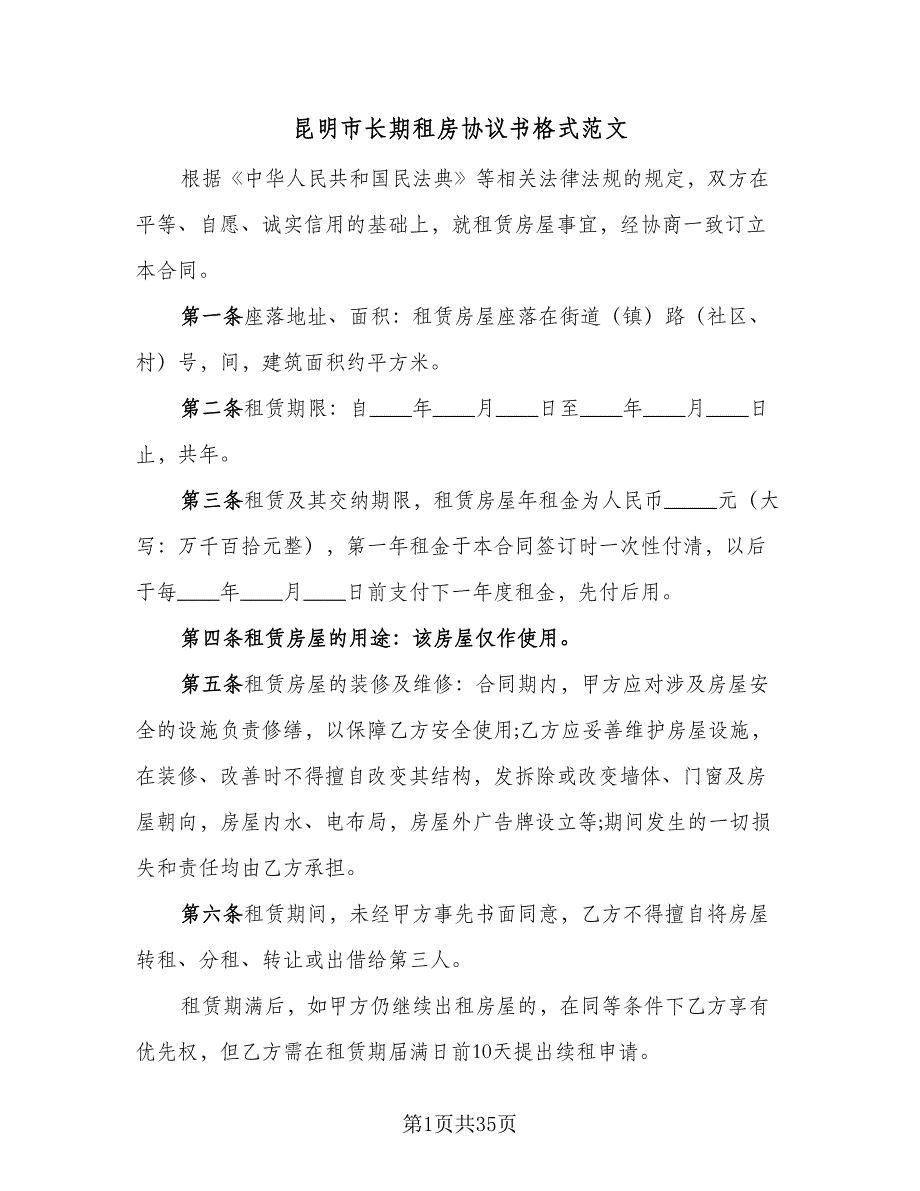 昆明市长期租房协议书格式范文
根据《中华人民共和国民法典》等相关法律法规的规定，双方在
平等、自愿、诚实信用的基础上，就租赁房屋事宜，经协商一致订立
本合同。
第一条座落地址、面积：租赁房屋座落在街道（镇）路（社区、
村）号，间，建筑面积约平方米。
第二条租赁期限：自____年____月____日至____年____月____日
止，共年。
第三条租赁及其交纳期限，租赁房屋年租金为人民币_____元（大
写：万千百拾元整），第一年租金于本合同签订时一次性付清，以后
于每____年____月____日前支付下一年度租金，先付后用。
第四条租赁房屋的用途：该房屋仅作使用。
第五条租赁房屋的装修及维修：合同期内，甲方应对涉及房屋安
全的设施负责修缮，以保障乙方安全使用;乙方应妥善维护房屋设施，
在装修、改善时不得擅自改变其结构，发拆除或改变墙体、门窗及房
屋朝向，房屋内水、电布局，房屋外广告牌设立等;期间发生的一切损
失和责任均由乙方承担。
第六条租赁期间，未经甲方事先书面同意，乙方不得擅自将房屋
转租、分租、转让或出借给第三人。
租赁期满后，如甲方仍继续出租房屋的，在同等条件下乙方享有
优先权，但乙方需在租赁期届满日前10天提出续租申请。
第1页共35页